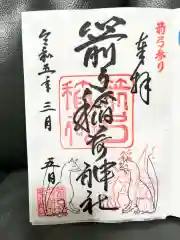 箭弓参り
奉拝
箭弓稲荷神社
令和五年三月
五日